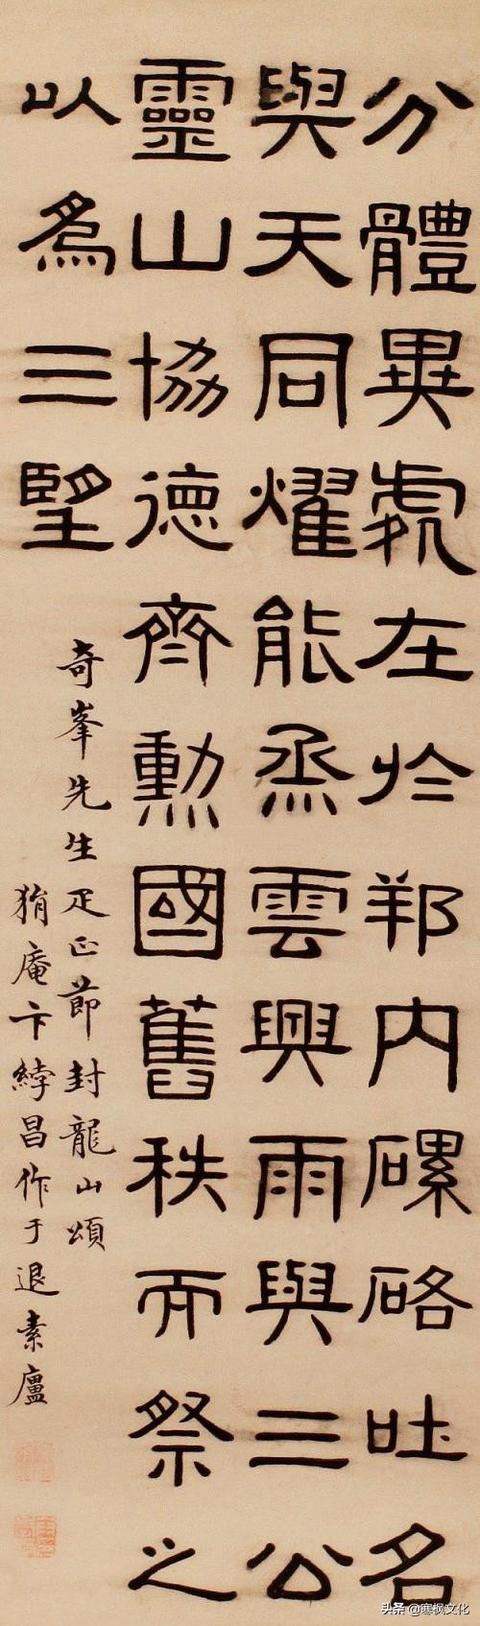 分體異處在於邦内磥硌吐名
與天同燿能烝雲興雨與三公
靈山協德齊勳國舊秩而祭之
以爲三望
奇峯先生疋正節封龍山頌
獧庵卞綍昌作于退素廬
头条 @寒枫文化